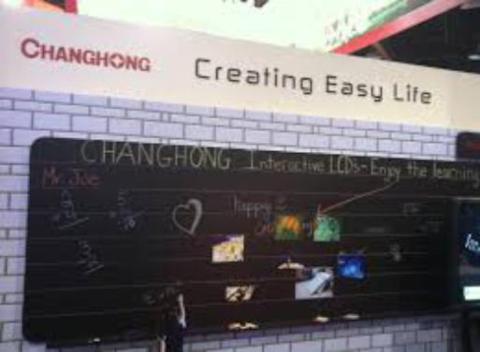 CHANGHONG
Creating Easy Life
CHANGHONG Interactive LCDs-Enjoy the learning
Mr. Joe
happy